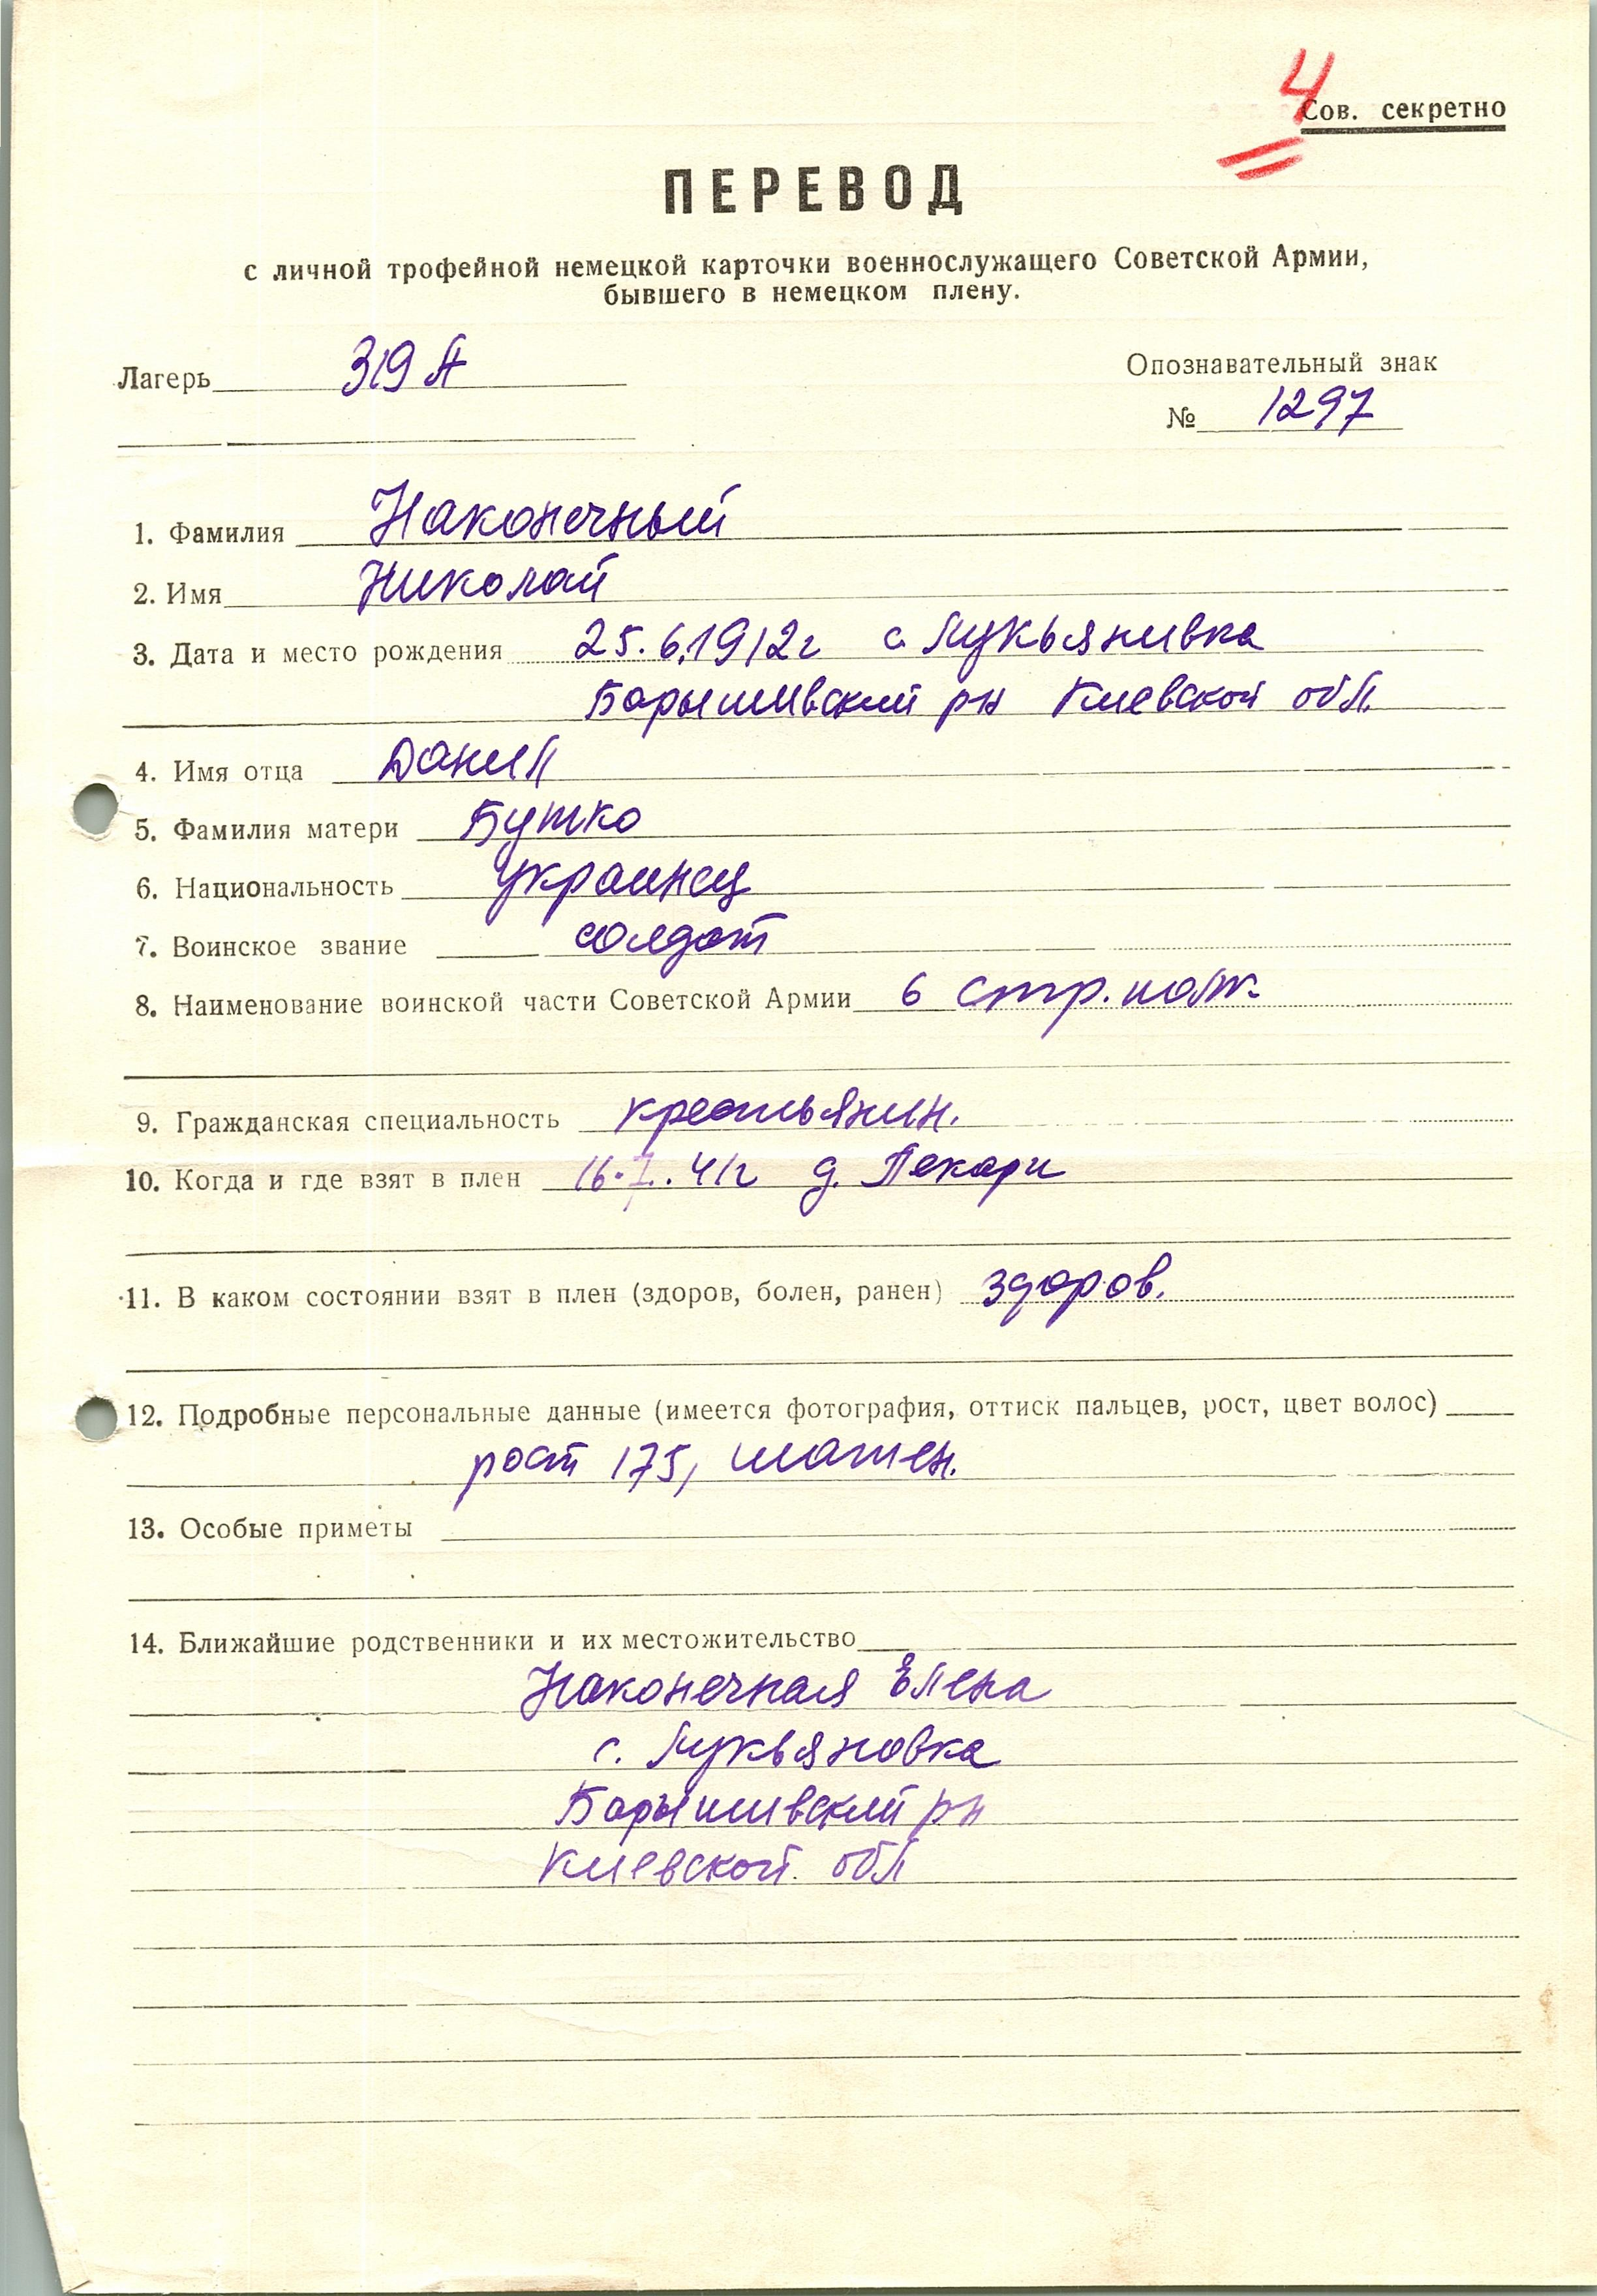 4
Сов. секретно
ПЕРЕВОД
с личной трофейной немецкой карточки военнослужащего Советской Армии,
бывшего в немецком плену.
Лагерь 319 А
Опознавательный знак
№ 1297
1. Фамилия Наконечный
2. Имя Николай
3. Дата и место рождения 25.6.1912г с. Лукьянивка
Барышивский рн Киевской обл.
4. Имя отца Данил
5. Фамилия матери Бутко
6. Национальность украинец
7. Воинское звание солдат
8. Наименование воинской части Советской Армии 6 стр. полк.
9. Гражданская специальность крестьянин.
10. Когда и где взят в плен 16. . 41г д. Пекари
11. В каком состоянии взят в плен (здоров, болен, ранен) здоров.
12. Подробные персональные данные (имеется фотография, оттиск пальцев, рост, цвет волос)
рост 175, шатен.
13. Особые приметы
14. Ближайшие родственники и их местожительство
Наконечная Елена
с. Лукьяновка
Барышивский рн
Киевской обл